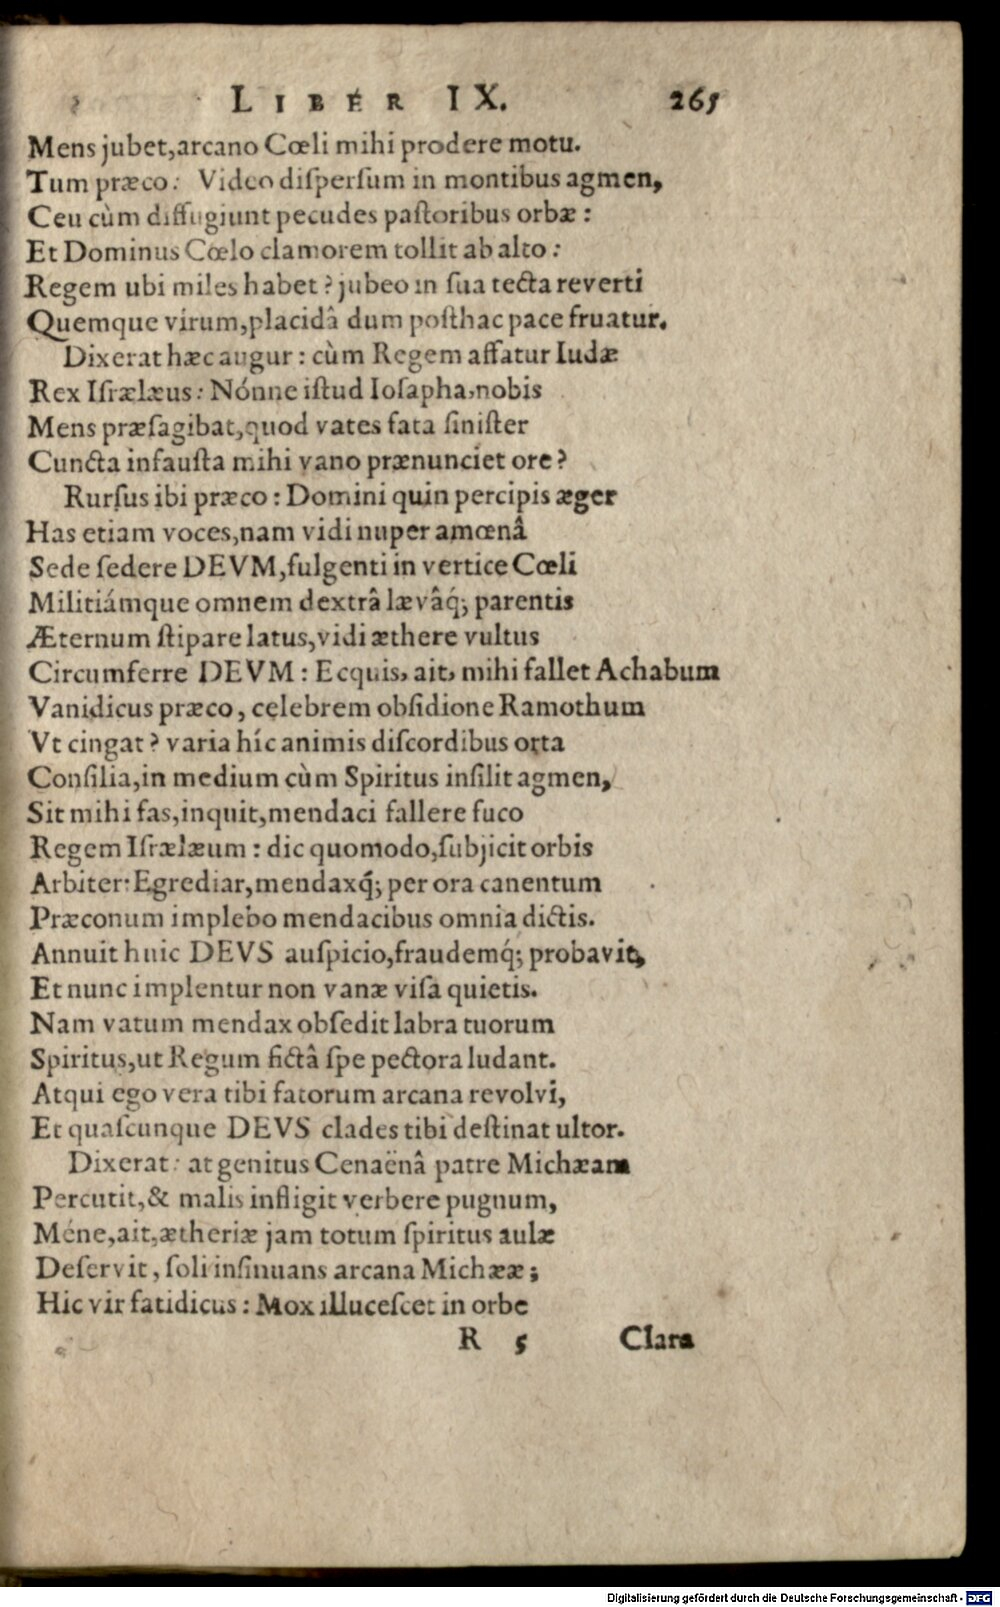 LIBER IX. 265
Mens jubet, arcano Cœli mihi prodere motu.
Tum præco: Video diſperſum in montibus agmen,
Ceu cùm diffugiunt pecudes paſtoribus orbæ:
Et Dominus Cœlo clamorem tollit ab alto:
Regem ubi miles habet? jubeo in ſua tecta reverti
Quemque virum, placidâ dum poſthac pace fruatur.
Dixerat hæc augur: cùm Regem affatur Iudæ
Rex Iſrælæus: Nónne iſtud Ioſapha, nobis
Mens præſagibat, quod vates fata ſiniſter
Cuncta infauſta mihi vano prænunciet ore?
Rurſus ibi præco: Domini quin percipis æger
Has etiam voces, nam vidi nuper amœnâ
Sede ſedere DEVM, fulgenti in vertice Cœli
Militiámque omnem dextrâ lævâq́; parentis
Æternum ſtipare latus, vidi æthere vultus
Circumferre DEVM: Ecquis, ait, mihi fallet Achabum
Vanidicus præco, celebrem obſidione Ramothum
Vt cingat? varia híc animis diſcordibus orta
Conſilia, in medium cùm Spiritus inſilit agmen,
Sit mihi fas, inquit, mendaci fallere fuco
Regem Iſrælæum: dic quomodo, ſubjicit orbis
Arbiter: Egrediar, mendaxq́; per ora canentum
Præconum implebo mendacibus omnia dictis.
Annuit huic DEVS auſpicio, fraudemq́; probavit,
Et nunc implentur non vanæ viſa quietis.
Nam vatum mendax obſedit labra tuorum
Spiritus, ut Regum fictâ ſpe pectora ludant.
Atqui ego vera tibi fatorum arcana revolvi,
Et quaſcunque DEVS clades tibi deſtinat ultor.
Dixerat: at genitus Cenaënâ patre Michæam
Percutit, & malis infligit verbere pugnum,
Méne, ait, ætheriæ jam totum ſpiritus aulæ
Deſervit, ſoli inſinuans arcana Michææ;
Hic vir fatidicus: Mox illuceſcet in orbe
R 5 Clara
Digitalisierung gefördert durch die Deutsche Forschungsgemeinschaft - DFG